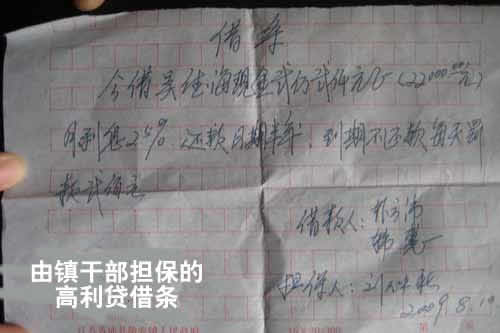 借条
今借吴佳海现金贰万贰仟元正(22000.00元)
月利息2.5% 还款日期半年,到期不还款每天罚
款贰佰元
借款人:
担保人:刘
2009.8.19
由镇干部担保的
高利贷借条